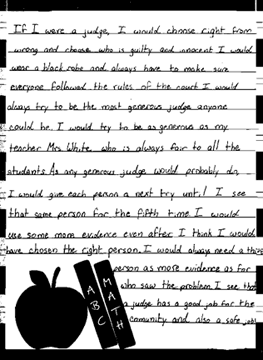 If I were a judge, I would choose right from
wrong and choose who is guilty and innocent I would
wear a black robe and always have to make sure
everyone followed the rules of the court I would
always try to be the most generous judge anyone
could be. I would try to be as generous as my
teacher Mrs. White, who is always fair to all the
students. As any generous judge would probably do,
I would give each person a next try until I see
that same person for the fifth time. I would
use some more evidence even after I think I would
have chosen the right person. I would always need a third
person as more evidence as for
who saw the problem. I see that
a judge has a good job for the
community and also a safe job
A B C
MATH